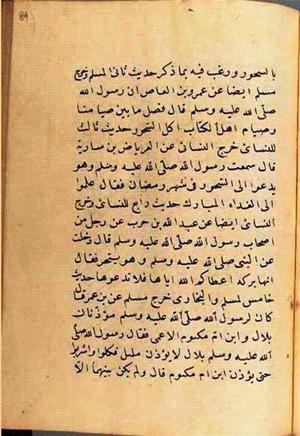 84
بالسحور ورغب فيه بما ذكر حديث ثاني المسلم خرج
مسلم ايضا عن عمرو بن العاص ان رسول الله
صلى الله عليه وسلم قال فصل ما بين صيامنا
وصيام اهل الكتاب اكل السحور حديث ثالث
للنسائى خرج النسائى عن العرباض بن سارية
قال سمعت رسول الله صلى الله عليه وسلم وهو
يدعوا الى السحور في شهر رمضان فقال هلموا
الى الغداء المبارك حديث رابع للنسائى وخرج
النسائى ايضا عن عبد الله بن حرب عن رجل من
اصحاب رسول الله صلى الله عليه وسلم قال دخلت
عن النبي صلى الله عليه وسلم وهو يتسحر فقال
انها بركه اعطاكم الله اياها فلا تدعوها حديث
خامس لمسلم والبخارى خرج مسلم عن بن عمر قال
كان لرسول الله صلى الله عليه وسلم مؤذنان
بلال وابن ام مكتوم الاعمى فقال رسول الله صلى
الله عليه وسلم بلال لا يؤذن بليل فكلوا واشربوا
حتى يؤذن ابن ام مكتوم قال ولم يكن بينهما الا